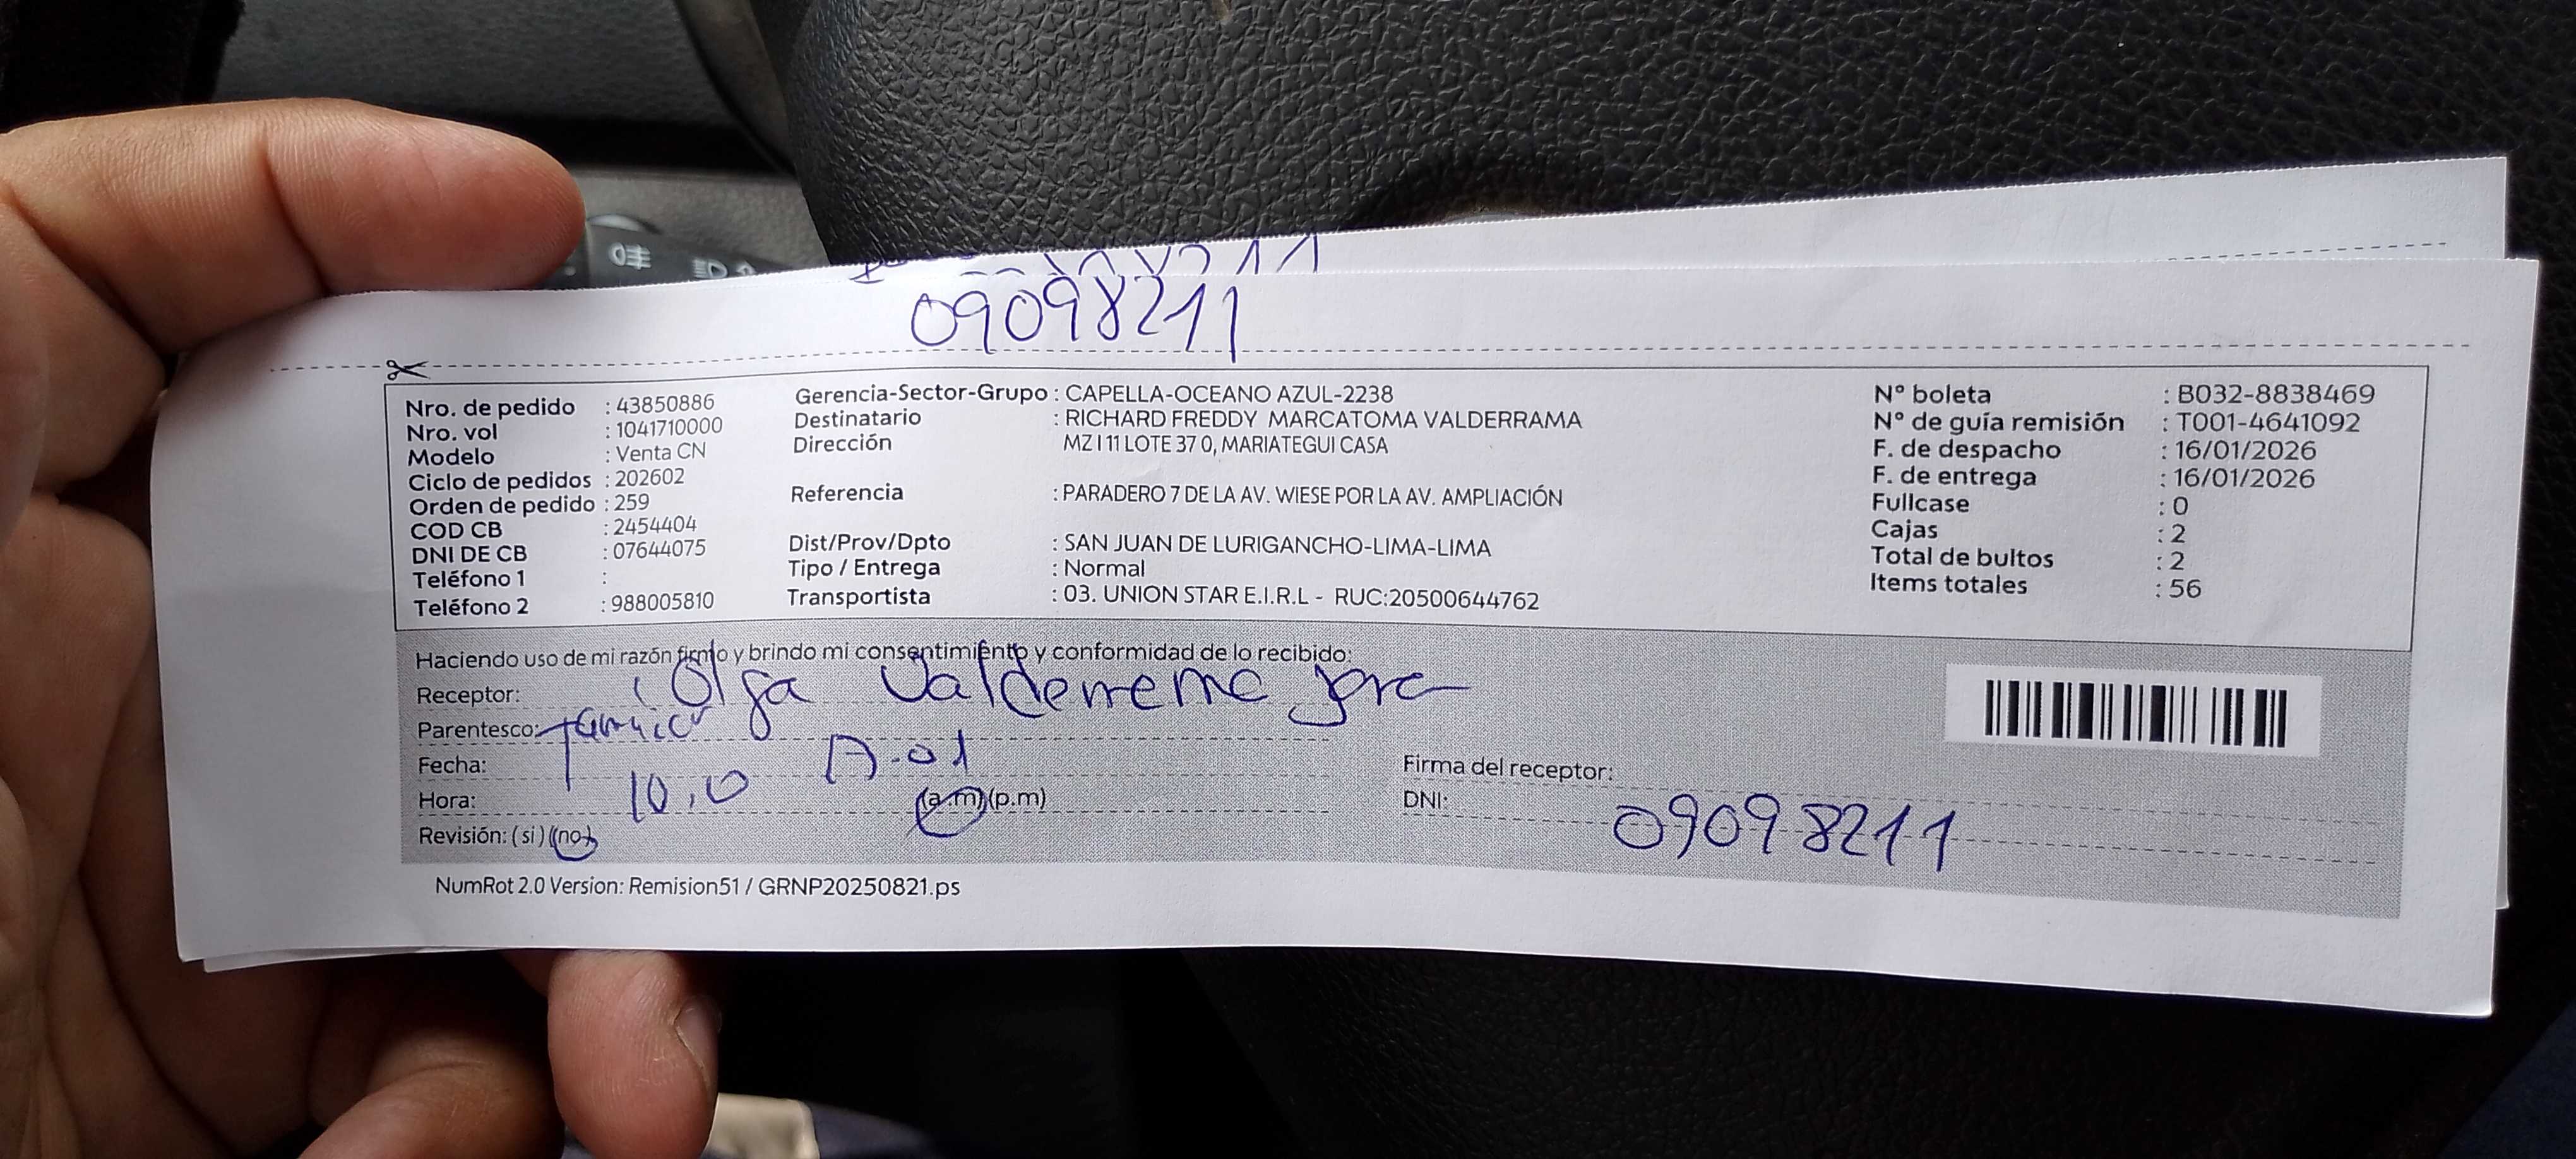 09098211
Nro. de pedido : 43850886
Nro. vol : 1041710000
Modelo : Venta CN
Ciclo de pedidos : 202602
Orden de pedido : 259
COD CB : 2454404
DNI DE CB : 07644075
Teléfono 1 :
Teléfono 2 : 988005810
Gerencia-Sector-Grupo : CAPELLA-OCEANO AZUL-2238
Destinatario : RICHARD FREDDY MARCATOMA VALDERRAMA
Dirección MZ I 11 LOTE 37 0, MARIATEGUI CASA
Referencia : PARADERO 7 DE LA AV. WIESE POR LA AV. AMPLIACIÓN
Dist/Prov/Dpto : SAN JUAN DE LURIGANCHO-LIMA-LIMA
Tipo / Entrega : Normal
Transportista : 03. UNION STAR E.I.R.L - RUC:20500644762
Nº boleta : B032-8838469
Nº de guía remisión : T001-4641092
F. de despacho : 16/01/2026
F. de entrega : 16/01/2026
Fullcase : 0
Cajas : 2
Total de bultos : 2
Items totales : 56
Haciendo uso de mi razón firmo y brindo mi consentimiento y conformidad de lo recibido:
Receptor: Olga
Parentesco:
Fecha:
Hora: (a.m)(p.m)
Revisión: (si) (no)
Firma del receptor:
DNI: 09098211
NumRot 2.0 Version: Remision51 / GRNP20250821.ps